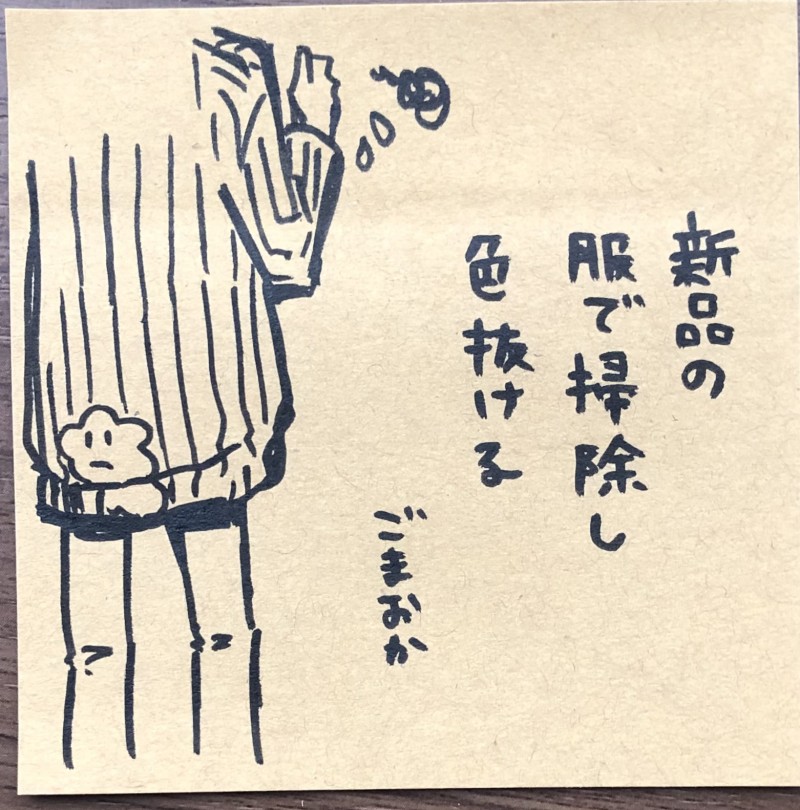 新品の
服で掃除し
色抜ける
ごまおか